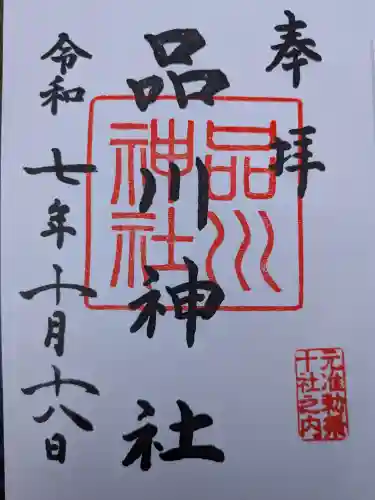 奉拝
品川神社
令和七年十月十八日
品川神社
元准勅祭
十社之内